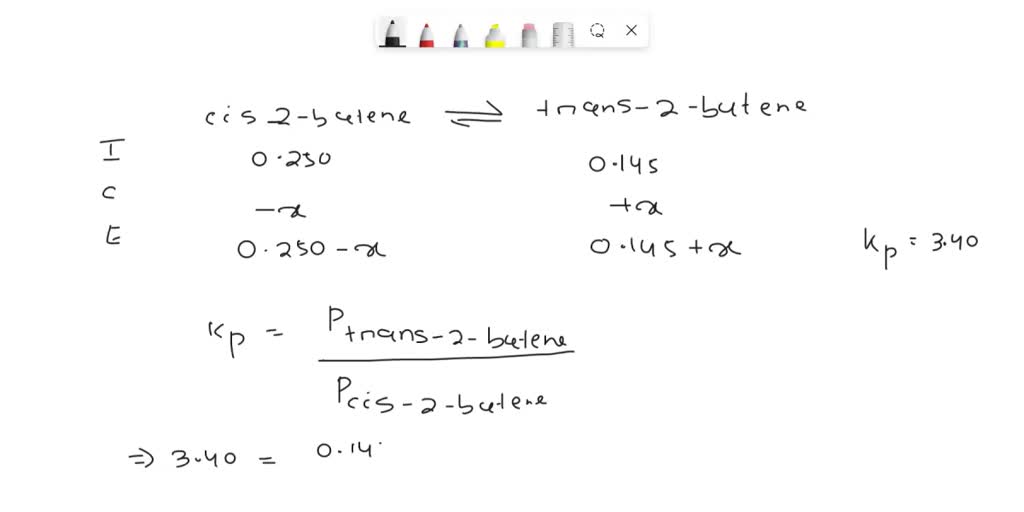 cis 2-butene ⇌ trans-2-butene
I 0.250 0.145
C -x +x
E 0.250-x 0.145+x kp = 3.40
kp = Ptrans-2-butene / Pcis-2-butene
⇒ 3.40 = 0.14